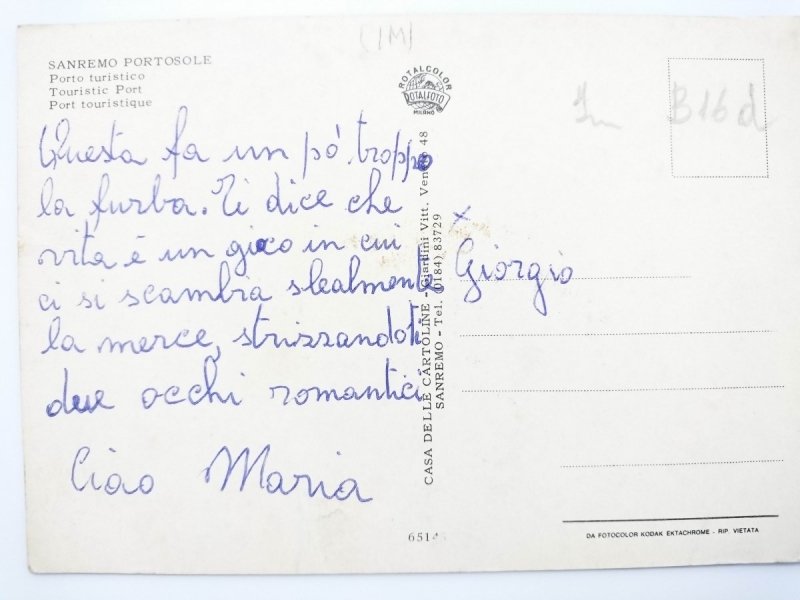 (IM)
SANREMO PORTOSOLE
Porto turistico
Touristic Port
Port touristique
ROTALCOLOR
ROTALFOTO
MILANO
B16d
Questa fa un pó troppo
la furba. Ti dice che
vita è un gioco in cui
ci si scambia slealmente
la merce, strizzandoti
due occhi romantici
Ciao Maria
x Giorgio
CASA DELLE CARTOLINE - Giardini Vitt. Veneto 48
SANREMO - Tel. (0184) 83729
6514
DA FOTOCOLOR KODAK EKTACHROME - RIP. VIETATA